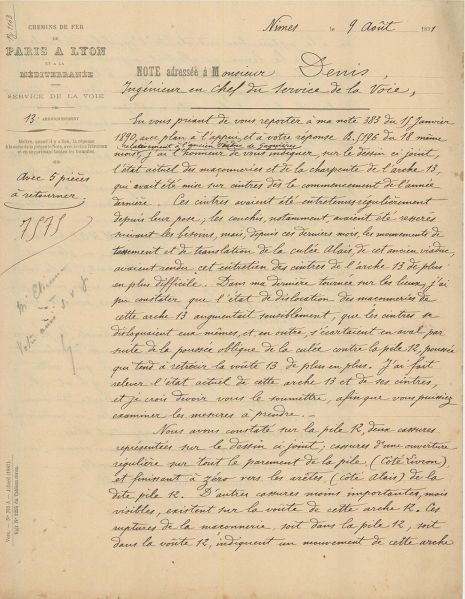 CHEMINS DE FER
DE
PARIS A LYON
ET A LA
MÉDITERRANÉE
SERVICE DE LA VOIE
13e ARRONDISSEMENT
Avec 5 pièces
à retourner
7575
Votre avis s.v.p.
Nimes, le 9 Août 1891
NOTE adressée à Monsieur Denis,
Ingénieur en Chef du Service de la Voie,
En vous priant de vous reporter à ma note 383 du 15 Janvier
1890, avec plan à l'appui, et à votre réponse B. 5196 du 18 même
relativement à l'ancien Viaduc de
mois, j'ai l'honneur de vous indiquer, sur le dessin ci joint,
l'état actuel des maçonneries et de la charpente de l'arche 13,
qui avait été mise sur cintres dès le commencement de l'année
dernière. Ces cintres avaient été entretenus régulièrement
depuis leur pose; les couchis, notamment, avaient été resserrés
suivant les besoins, mais, depuis ces derniers mois, les mouvements de
tassement et de translation de la culée Alais, de cet ancien viaduc,
avaient rendu cet entretien des cintres de l'arche 13 de plus
en plus difficile. Dans ma dernière tournée sur les lieux, j'ai
pu constater que l'état de dislocation des maçonneries de
cette arche 13 augmentait sensiblement, que les cintres se
disloquaient eux mêmes, et, en outre, s'écartaient en aval, par
suite de la poussée oblique de la culée contre la pile 12, poussée
qui tend à rétrécir la voûte 13 de plus en plus. J'ai fait
relever l'état actuel de cette arche 13 et de ses cintres,
et je crois devoir vous le soumettre, afin que vous puissiez
examiner les mesures à prendre. _
Nous avons constaté sur la pile 12, deux cassures
représentées sur le dessin ci joint; cassures d'une ouverture
régulière sur tout le parement de la pile, (Côté Givors)
et finissant à zéro vers les arêtes (côté Alais) de la
dite pile 12. D'autres cassures moins importantes, mais
visibles, existent sur la voûte de cette arche 12. Ces
ruptures de la maçonnerie, soit dans la pile 12, soit
dans la voûte 12, indiquent un mouvement de cette arche